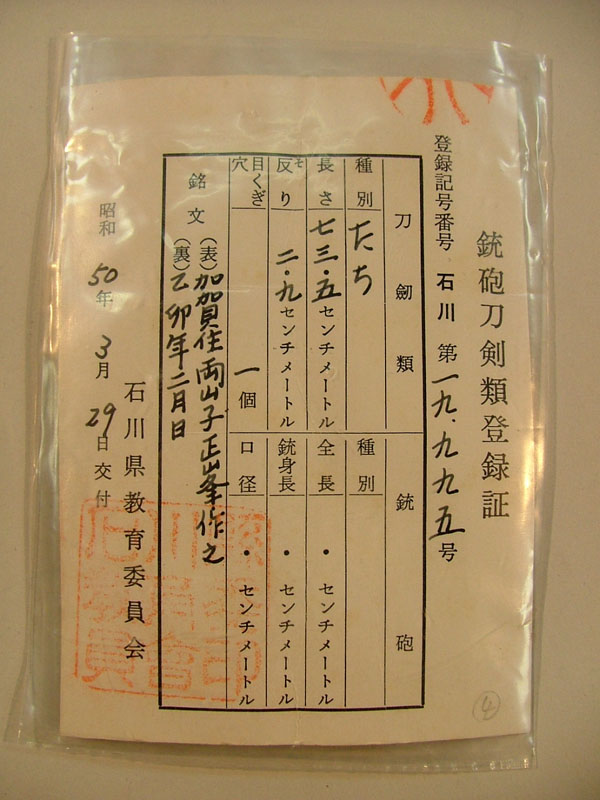 銃砲刀剣類登録証
登録記号番号 石川 第一九.九九五号
刀劒類
銃砲
種別 たち
長さ 七三.五センチメートル
反り 二.九センチメートル
そ
目くぎ穴 一個
種別
全長 ・ センチメートル
銃身長 ・ センチメートル
口径 ・ センチメートル
銘文
(表)加賀住両山子正峯作之
(裏)乙卯年二月日
石川県教育委員会
昭和50年3月29日交付
④